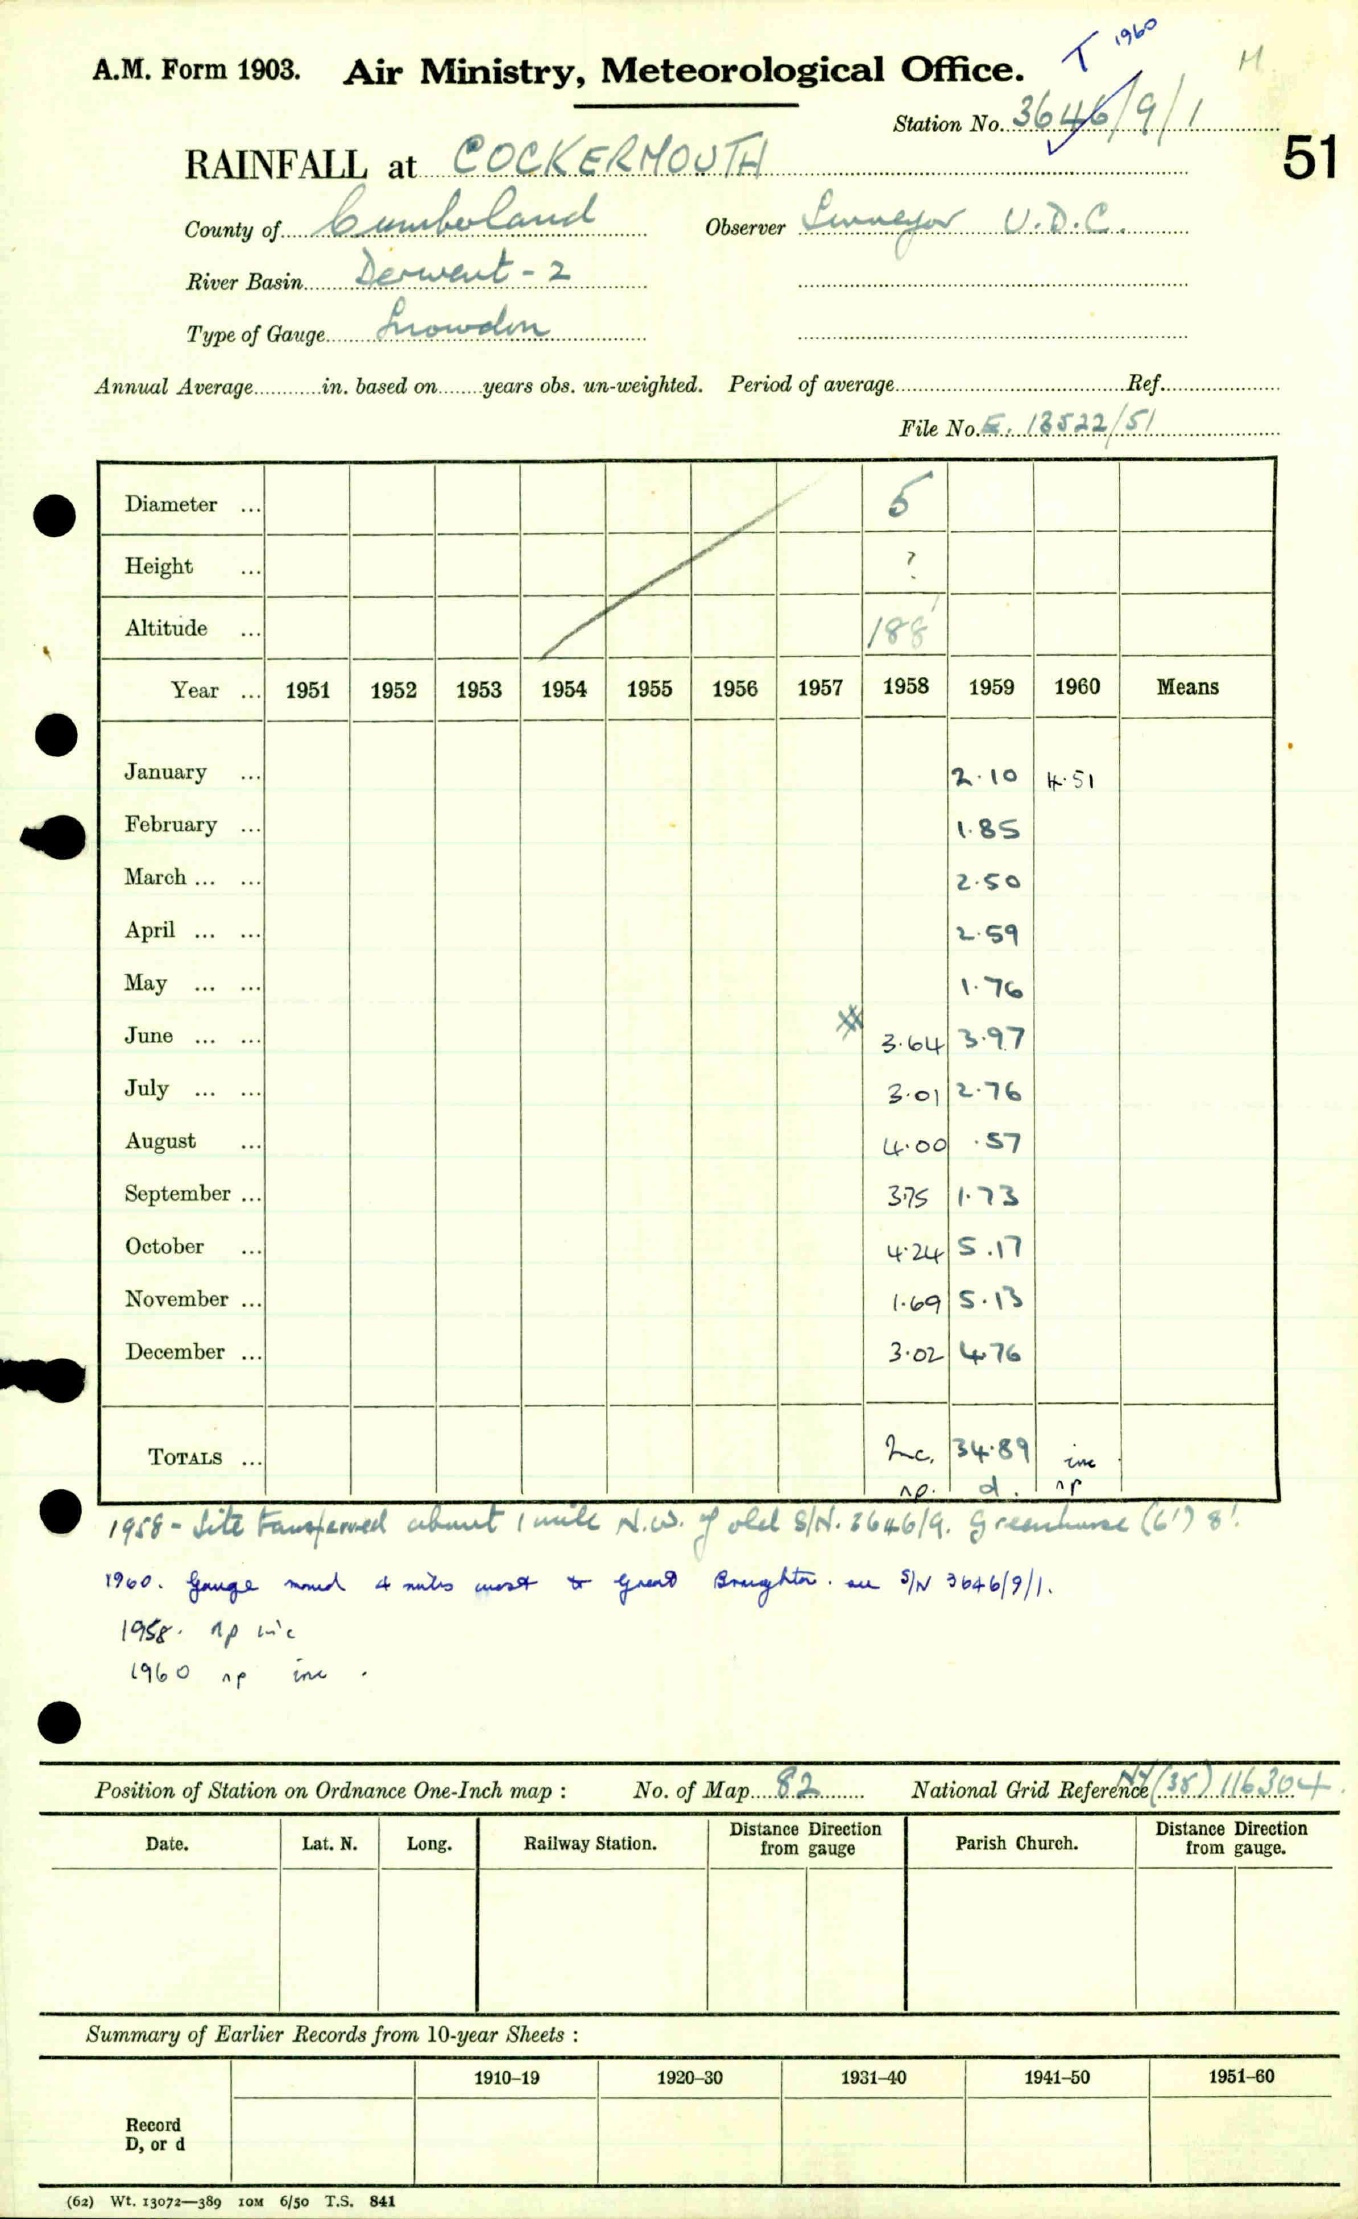 T 1960
M.
A.M. Form 1903. Air Ministry, Meteorological Office.
Station No. 3646/9/1
51
RAINFALL at COCKERMOUTH
County of Cumberland Observer Surveyor U.D.C.
River Basin Derwent - 2
Type of Gauge Snowdon
Annual Average in. based on years obs. un-weighted. Period of average Ref.
File No. E. 13522/51
Diameter ... 5
Height ... ?
Altitude ... 188'
Year ... 1951 1952 1953 1954 1955 1956 1957 1958 1959 1960 Means
January ... 2.10 4.51
February ... 1.85
March ... ... 2.50
April ... ... 2.59
May ... ... 1.76
June ... ... 3.64 3.97
July ... ... 3.01 2.76
August ... 4.00 .57
September ... 3.75 1.73
October ... 4.24 5.17
November ... 1.69 5.13
December ... 3.02 4.76
TOTALS ... Inc. 34.89 inc
np. d. np
1958 - Site transferred about 1 mile N.W. of old S/N. 3646/9. Greenhouse (6') 8'.
1960. Gauge moved 4 miles west to Great Broughton. see S/N 3646/9/1.
1958. np inc
1960 np inc.
Position of Station on Ordnance One-Inch map : No. of Map 82 National Grid Reference NY (35) 116304.
Date. Lat. N. Long. Railway Station. Distance from Direction gauge Parish Church. Distance from Direction gauge.
Summary of Earlier Records from 10-year Sheets :
1910–19 1920–30 1931–40 1941–50 1951–60
Record
D, or d
(62) Wt. 13072—389 10M 6/50 T.S. 841